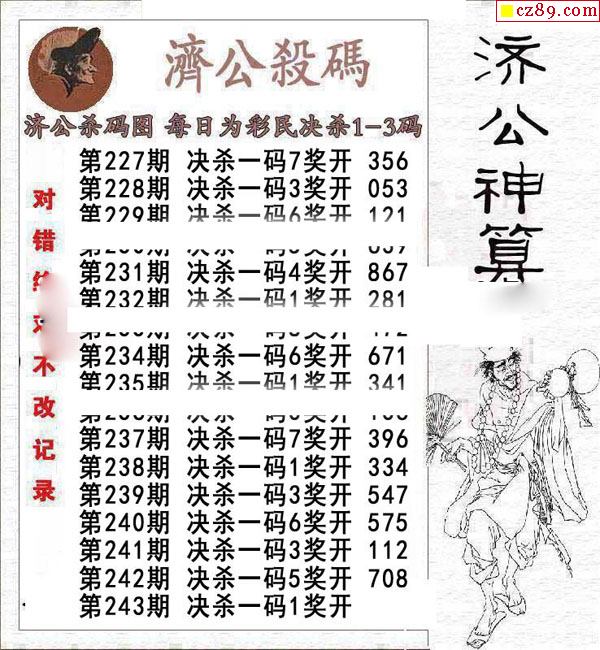 cz89.com
濟公殺碼
济公杀码图 每日为彩民决杀1-3码
第227期 决杀一码7奖开 356
第228期 决杀一码3奖开 053
第229期 决杀一码6奖开 121
第231期 决杀一码4奖开 867
第232期 决杀一码1奖开 281
第234期 决杀一码6奖开 671
第235期 决杀一码1奖开 341
第237期 决杀一码7奖开 396
第238期 决杀一码1奖开 334
第239期 决杀一码3奖开 547
第240期 决杀一码6奖开 575
第241期 决杀一码3奖开 112
第242期 决杀一码5奖开 708
第243期 决杀一码1奖开
对错 不改记录
济公神算